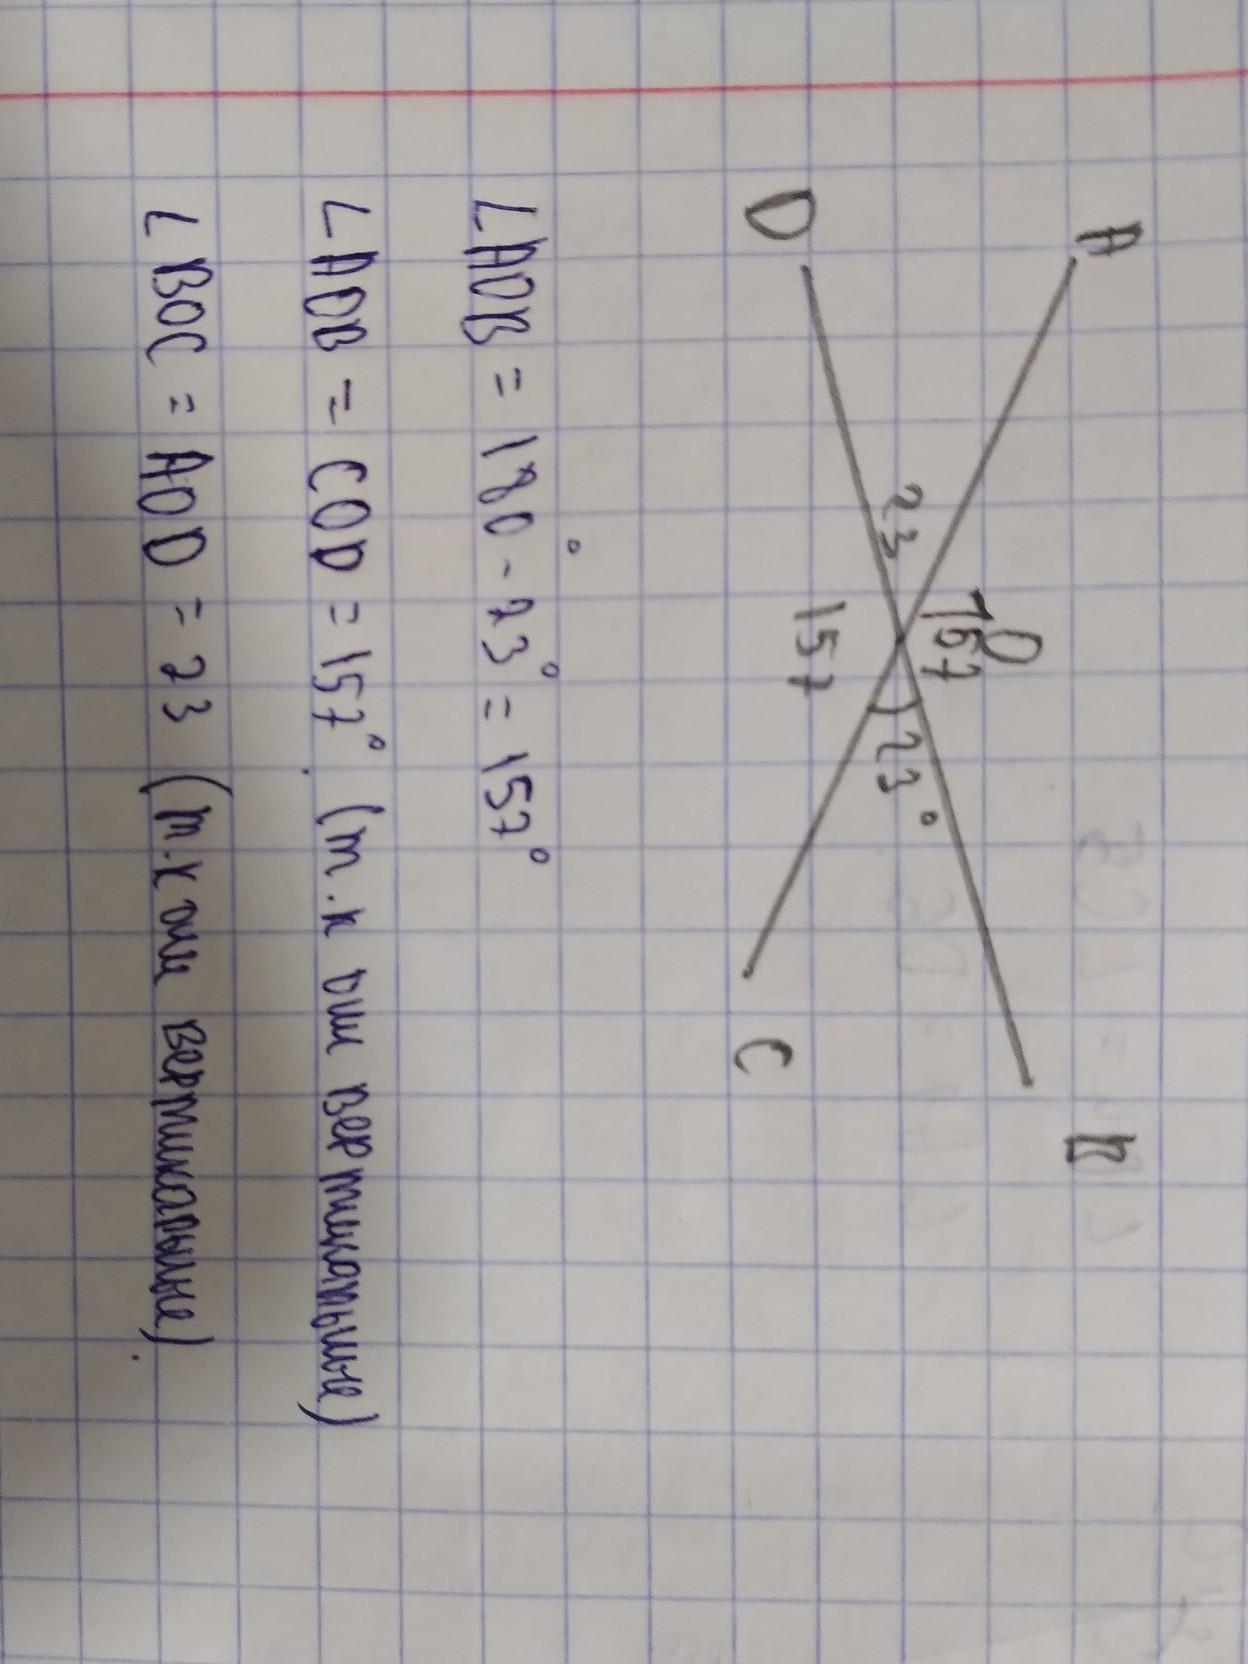 A
B
O
157
23
23°
157
D
C
∠AOB = 180° - 23° = 157°
∠AOB = COD = 157° (т.к они вертикальные)
∠BOC = AOD = 23 (т.к они вертикальные)